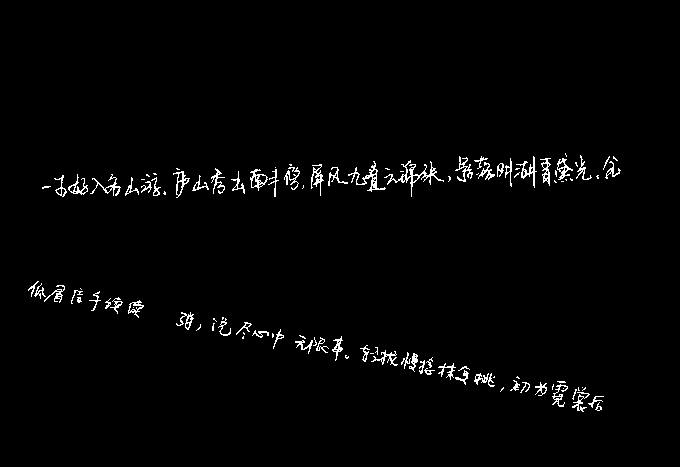 一生好入名山游.庐山秀出南斗傍,屏风九叠云锦张,影落明湖青黛光.金
低眉信手续续 弹,说尽心中无限事。轻拢慢捻抹复挑,初为霓裳后